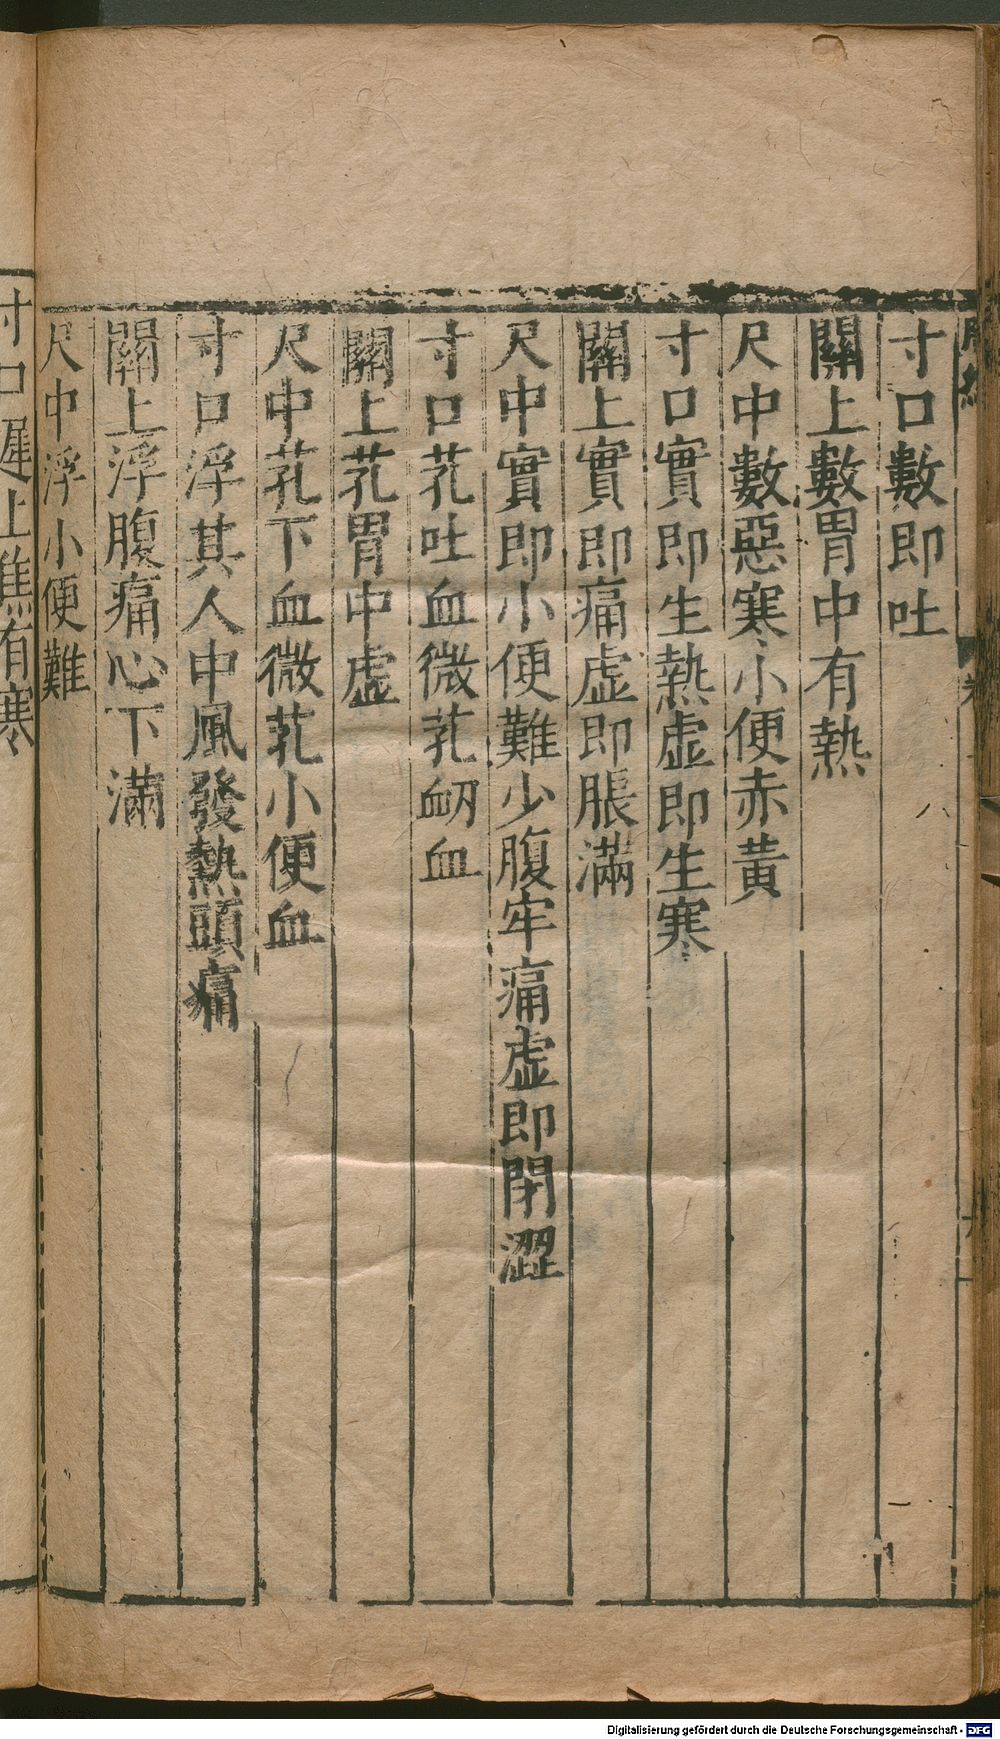 寸口數即吐
關上數胃中有熱
尺中數惡寒小便赤黃
寸口實即生熱虛即生寒
關上實即痛虛即脹滿
尺中實即小便難少腹牢痛虛即閉澀
寸口芤吐血微芤衂血
關上芤胃中虛
尺中芤下血微芤小便血
寸口浮其人中風發熱頭痛
關上浮腹痛心下滿
尺中浮小便難
寸口遲上焦有寒
Digitalisierung gefördert durch die Deutsche Forschungsgemeinschaft - DFG